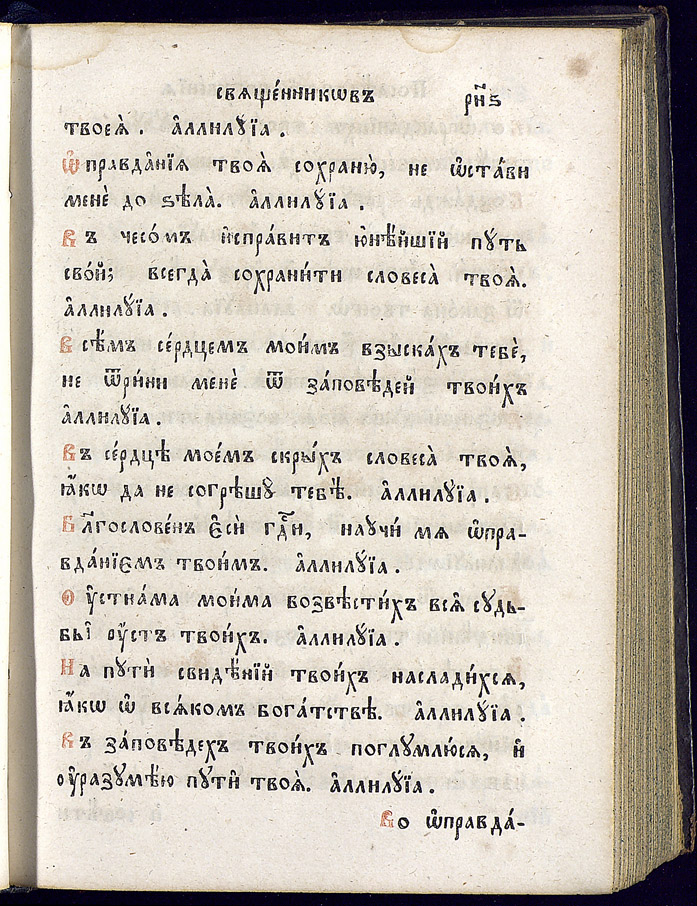 свѧще́нникѡвъ рн҃ѕ
твоеѧ̀. а҆ллилꙋ́їа.
Ѡ҆правда́нїѧ твоѧ̀ сохраню̀, не ѡ҆ста́ви
менѐ до ѕѣла̀. а҆ллилꙋ́їа.
Въ чесо́мъ и҆спра́витъ ю҆нѣ́йшїй пꙋть
сво́й; всегда̀ сохрани́ти словеса̀ твоѧ̀.
а҆ллилꙋ́їа.
Всѣ́мъ се́рдцемъ мои́мъ взыска́хъ тебѐ,
не ѿри́ни менѐ ѿ за́повѣдей твои́хъ
а҆ллилꙋ́їа.
Въ се́рдцѣ мое́мъ скры́хъ словеса̀ твоѧ̀,
ꙗ҆́кѡ да не согрѣшꙋ̀ тебѣ̀. а҆ллилꙋ́їа.
Бл҃гослове́нъ є҆сѝ гдⷭ҇и, наꙋчи́ мѧ ѡ҆пра-
вда́нїємъ твои́мъ. а҆ллилꙋ́їа.
Оу҆стна́ма мои́ма возвѣсти́хъ всѧ̑ сꙋдь-
бы̑ оу҆́стъ твои́хъ. а҆ллилꙋ́їа.
На пꙋтѝ свидѣ́нїй твои́хъ наслади́хсѧ,
ꙗ҆́кѡ ѡ҆ всѧ́комъ бога́тствѣ. а҆ллилꙋ́їа.
Въ за́повѣдехъ твои́хъ поглꙋмлю́сѧ, и҆
оу҆разꙋмѣ́ю пꙋти̑ твоѧ̑. а҆ллилꙋ́їа.
Во ѡ҆правда́-